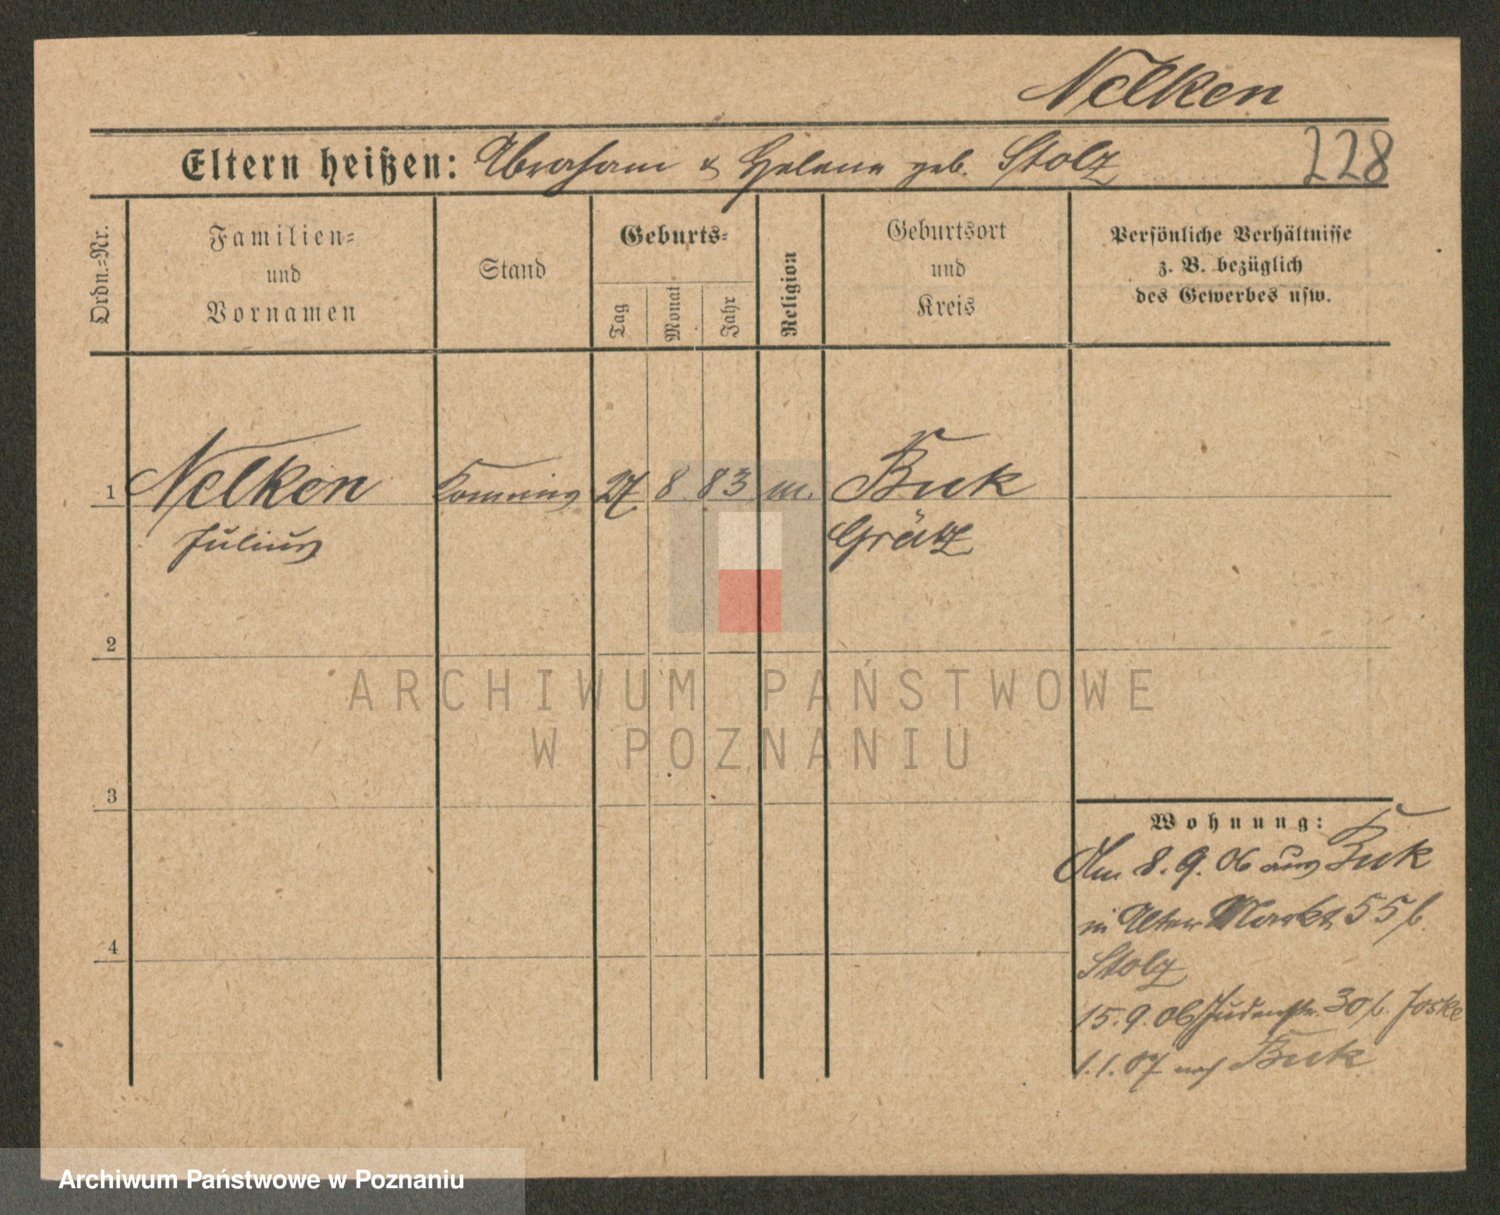 Nelken
Eltern heißen: Abraham & Helene geb. Stolz
228
Ordn.-Nr.
Familien-
und
Vornamen
Stand
Geburts-
Tag
Monat
Jahr
Religion
Geburtsort
und
Kreis
Persönliche Verhältnisse
z. B. bezüglich
des Gewerbes usw.
1 Nelken 27 8 83 m. Buk
Julius Grätz
2
3
4
Wohnung:
Am 8.9.06 aus Buk
in Alter Markt 55 b.
Stolz
15.9.06 Judenstr. 30 b. Joske
1.1.07 nach Buk
ARCHIWUM PAŃSTWOWE
W POZNANIU
Archiwum Państwowe w Poznaniu